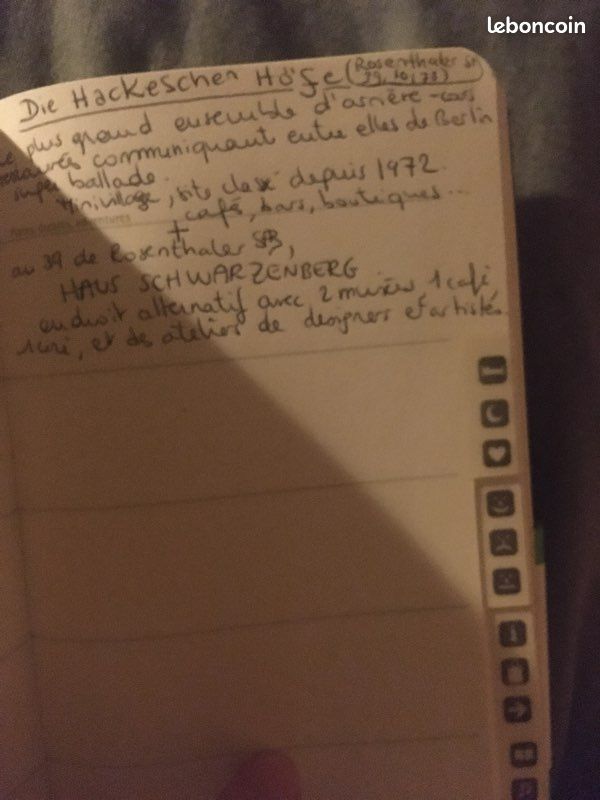 leboncoin
Die Hackeschen Höfe (Rosenthaler St
39, 40/73)
plus grand ensemble d'arrière-cours
restaurés communiquant entre elles de Berlin
super ballade.
Minivillage, site classé depuis 1972
+ café, bars, boutiques...
au 39 de Rosenthaler Str,
HAUS SCHWARZENBERG
endroit alternatif avec 2 musées 1 café,
1 ciné, et des atelier de designers et artistes